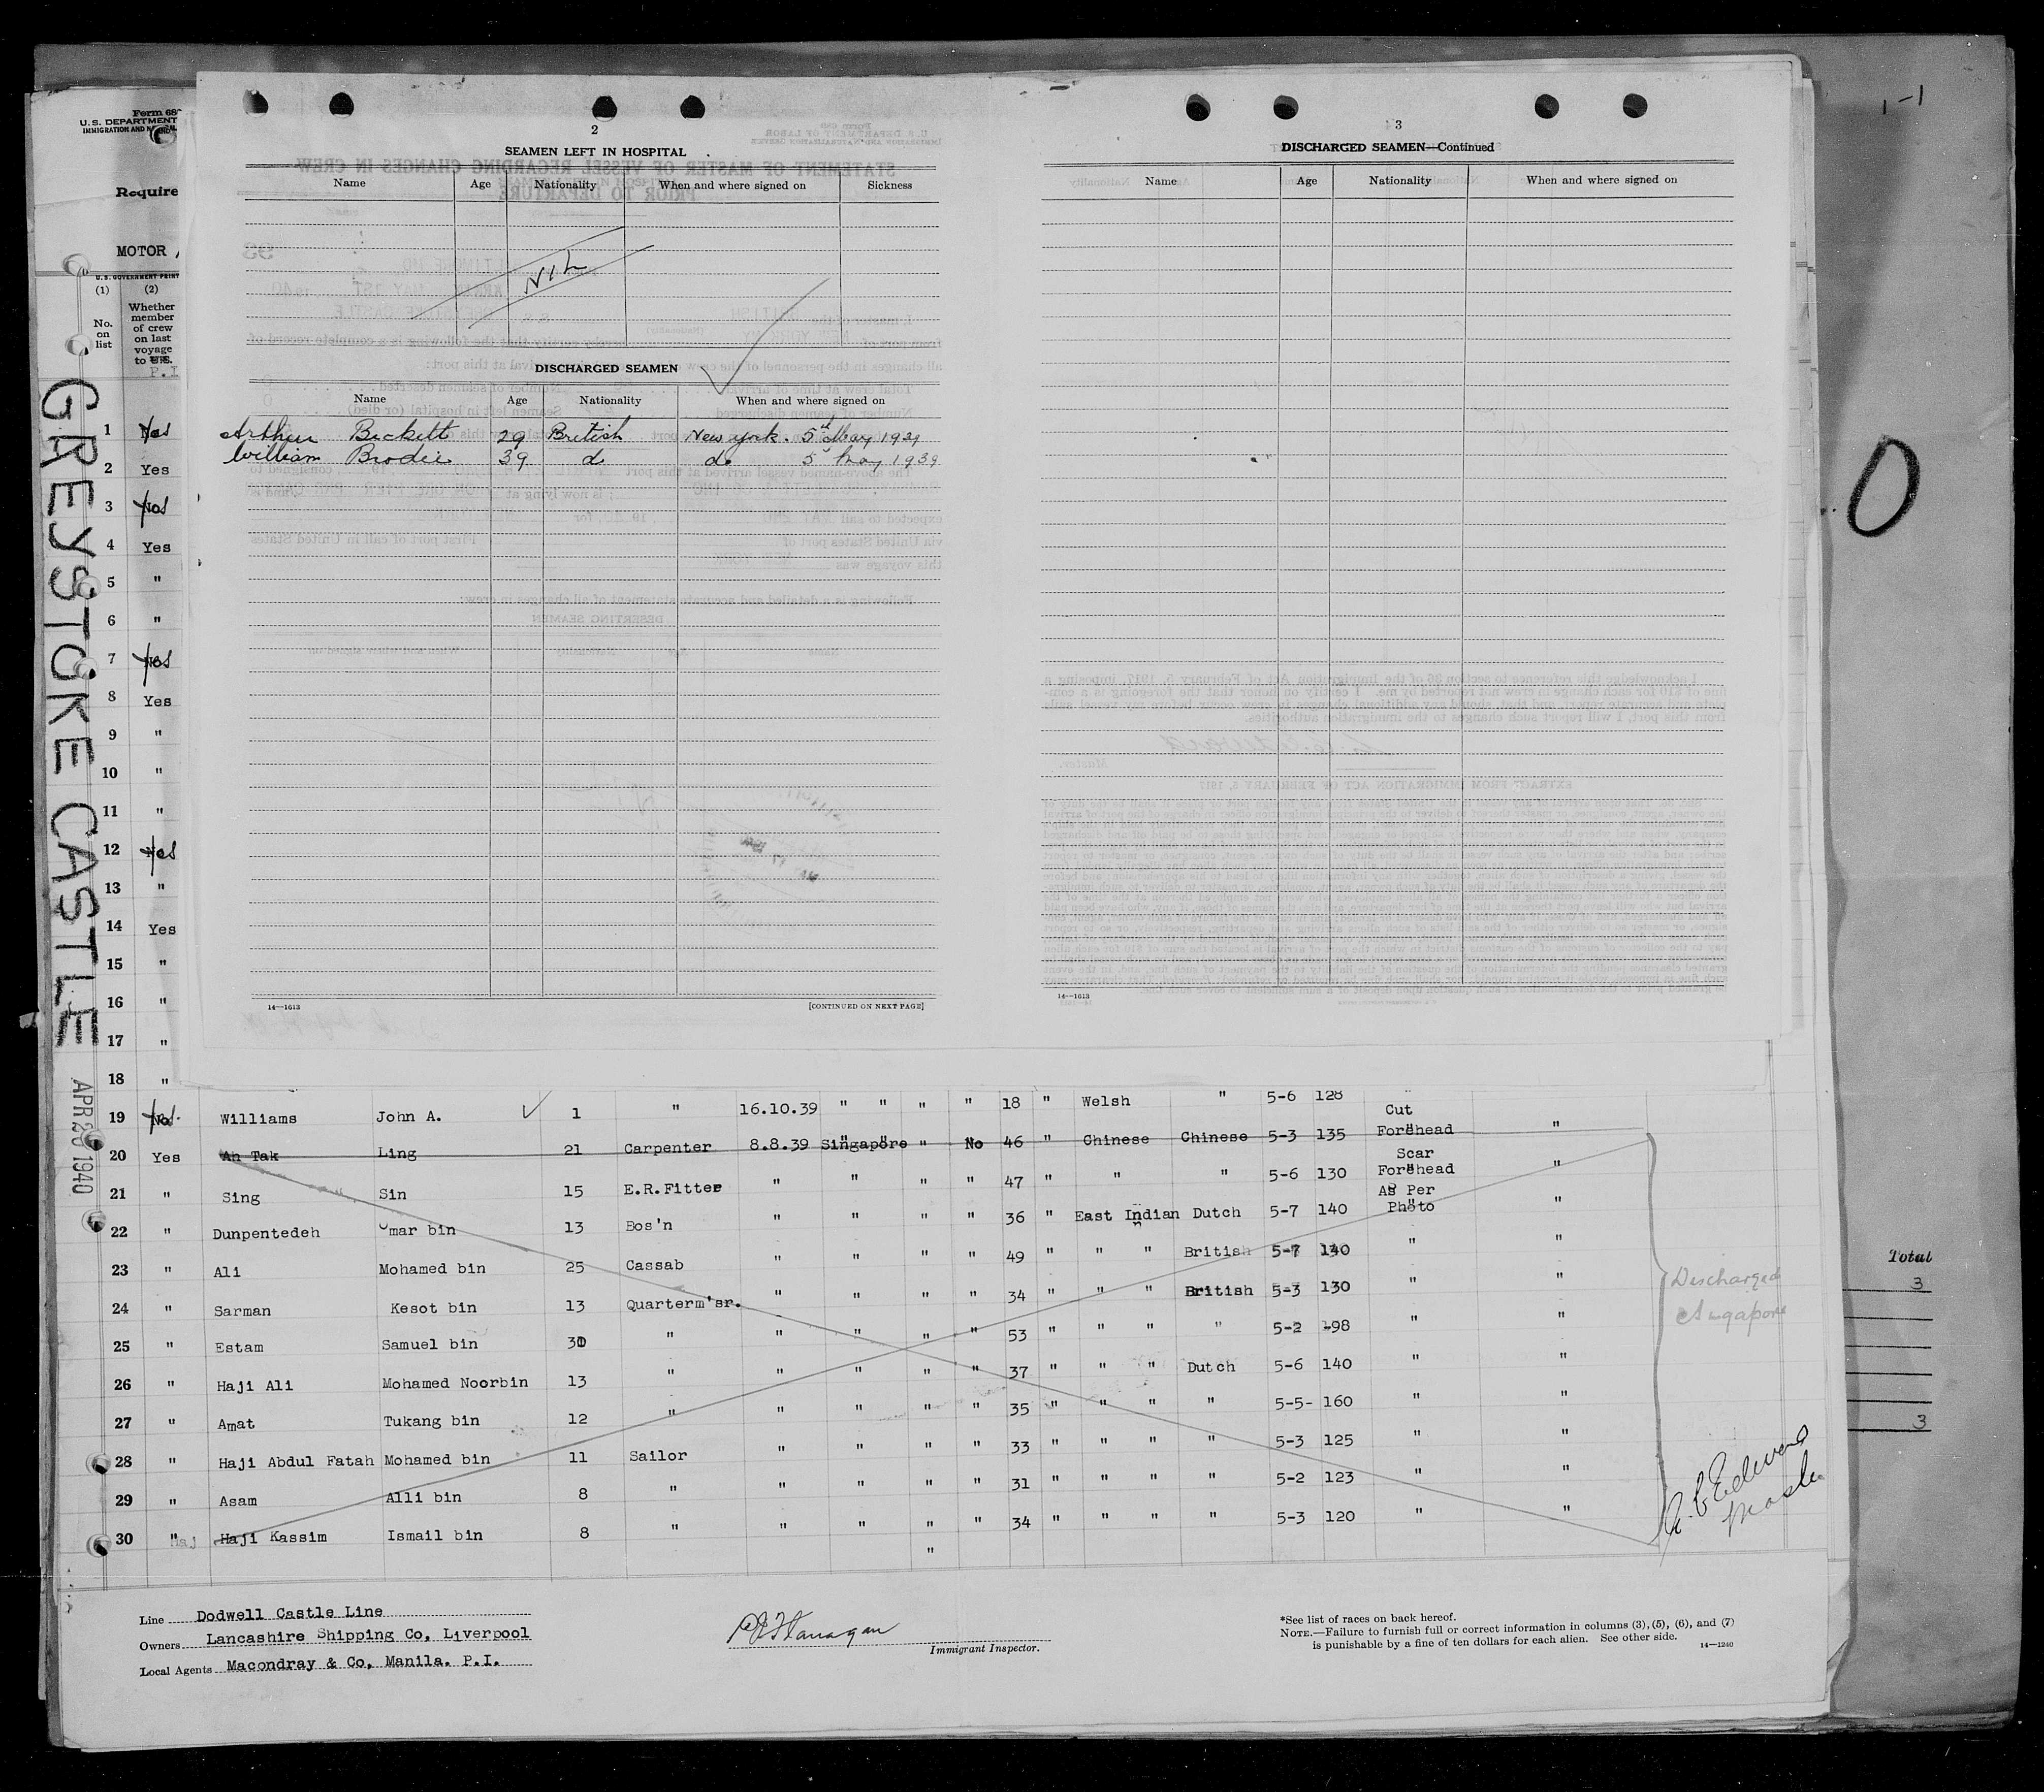 Form 68
U. S. DEPARTMENT
IMMIGRATION AND
Require
MOTOR
U. S. GOVERNMENT PRINT
(1) (2)
No. on list
Whether member of crew on last voyage to U.S.
P.I
GREYSTOKE CASTLE
APR 20 1940
2
SEAMEN LEFT IN HOSPITAL
Name Age Nationality When and where signed on Sickness
NIL
DISCHARGED SEAMEN
Name Age Nationality When and where signed on
Arthur Beckett 29 British New York. 5th May 1939
William Brodie 39 do do 5 May 1939
14—1613 [CONTINUED ON NEXT PAGE]
3
DISCHARGED SEAMEN—Continued
Name Age Nationality When and where signed on
14—1613
1-1
0
1 Yes
2 Yes
3 Yes
4 Yes
5 "
6 "
7 Yes
8 Yes
9 "
10 "
11 "
12 Yes
13 "
14 Yes
15 "
16 "
17 "
18 "
19 Yes Williams John A. 1 " 16.10.39 " " " " 18 " Welsh " 5-6 128 "
Cut
20 Yes Ah Tak Ling 21 Carpenter 8.8.39 Singapore " No 46 " Chinese Chinese 5-3 135 Forehead "
Scar
21 " Sing Sin 15 E.R.Fitter " " " " 47 " " " 5-6 130 Forehead "
As Per
22 " Dunpentedeh Omar bin 13 Bos'n " " " " 36 " East Indian Dutch 5-7 140 Photo "
23 " Ali Mohamed bin 25 Cassab " " " " 49 " " " British 5-7 140 " "
24 " Sarman Kesot bin 13 Quarterm'sr. " " " " 34 " " " British 5-3 130 " "
25 " Estam Samuel bin 30 " " " " " 53 " " " " 5-2 98 " "
26 " Haji Ali Mohamed Noorbin 13 " " " " " 37 " " " Dutch 5-6 140 " "
27 " Amat Tukang bin 12 " " " " " 35 " " " " 5-5- 160 " "
28 " Haji Abdul Fatah Mohamed bin 11 Sailor " " " " 33 " " " " 5-3 125 " "
29 " Asam Alli bin 8 " " " " " 31 " " " " 5-2 123 " "
30 " Haji Kassim Ismail bin 8 " " " " " 34 " " " " 5-3 120 " "
"
Discharged
Singapore
Total
3
3
Edwards
Master
Line Dodwell Castle Line
Owners Lancashire Shipping Co, Liverpool
Local Agents Macondray & Co, Manila. P.I.
Flanagan
Immigrant Inspector.
*See list of races on back hereof.
NOTE.—Failure to furnish full or correct information in columns (3), (5), (6), and (7)
is punishable by a fine of ten dollars for each alien. See other side.
14—1240